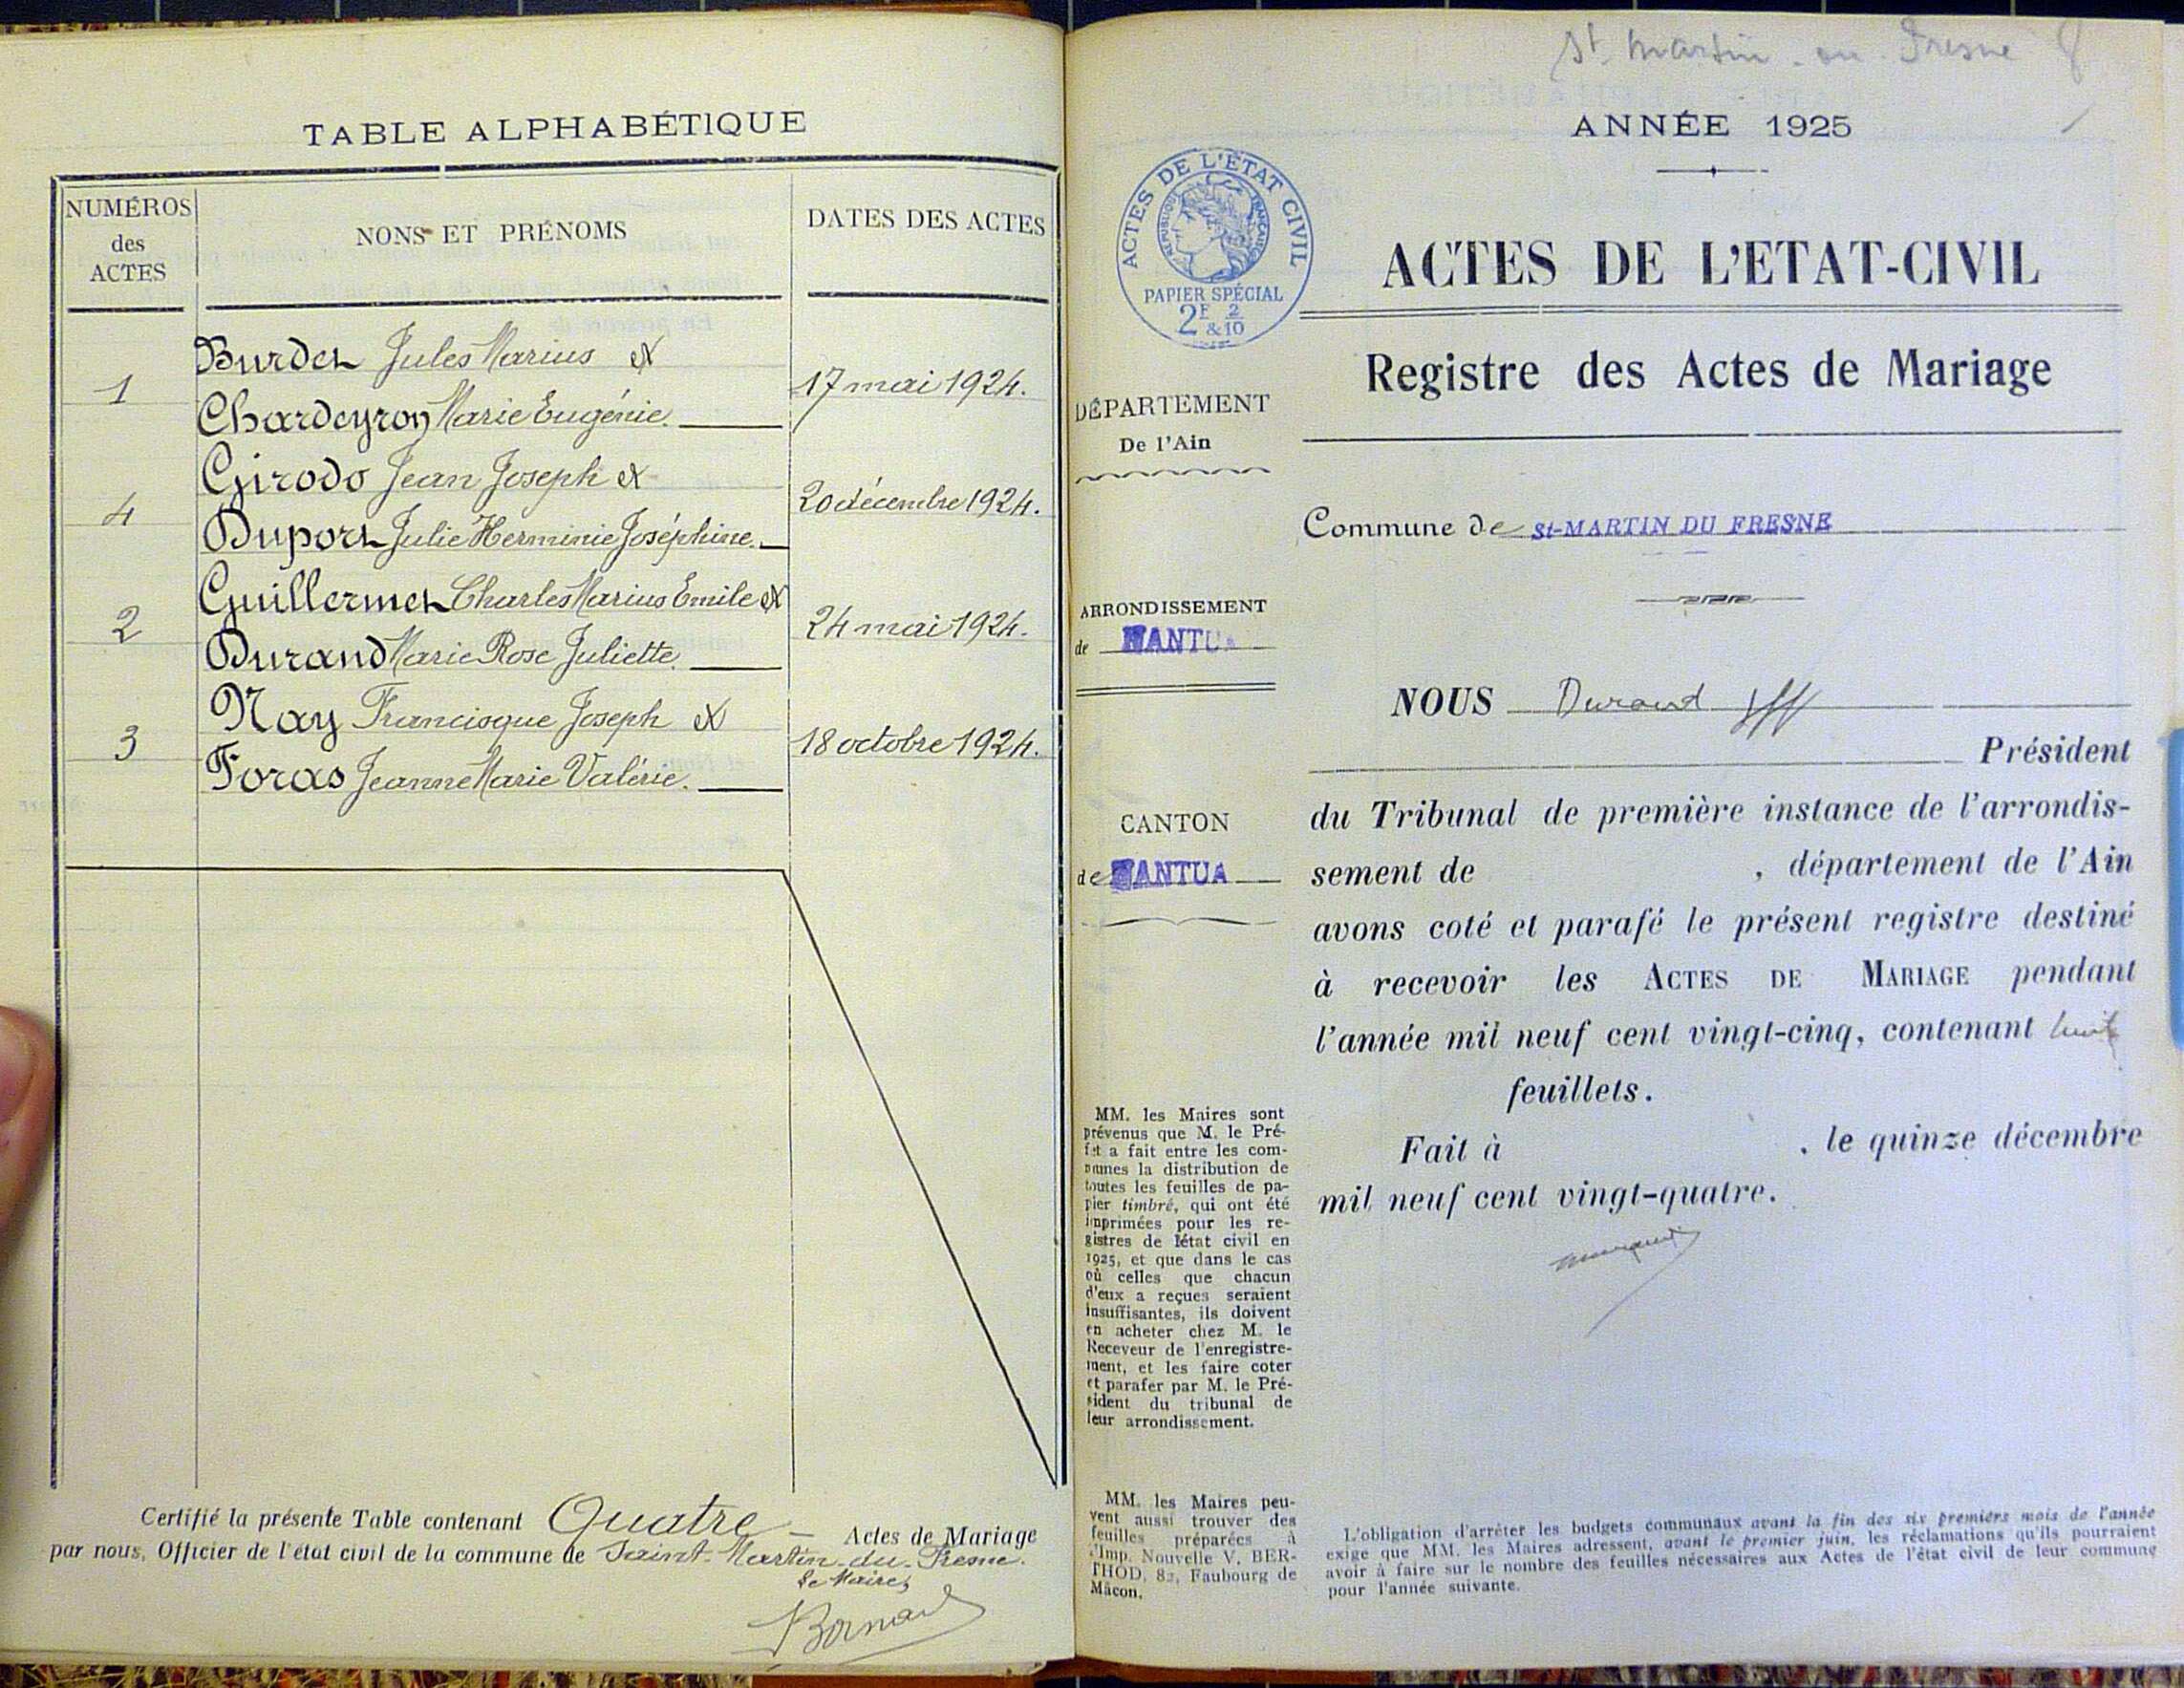 TABLE ALPHABÉTIQUE
NUMÉROS
des
ACTES
NONS ET PRÉNOMS
DATES DES ACTES
1
Burdet Jules Marius et
Chardeyron Marie Eugénie.
17 mai 1924.
4
Girodo Jean Joseph et
Duport Julie Herminie Joséphine.
20 décembre 1924.
2
Guillermet Charles Marius Emile et
Durand Marie Rose Juliette.
24 mai 1924.
3
Nay Francisque Joseph et
Foras Jeanne Marie Valérie.
18 octobre 1924.
Certifié la présente Table contenant Quatre Actes de Mariage
par nous, Officier de l'état civil de la commune de Saint-Martin-du-Fresne.
Le Maire,
St Martin-du-Fresne
ANNÉE 1925
ACTES DE L'ÉTAT CIVIL
RÉPUBLIQUE FRANÇAISE
PAPIER SPÉCIAL
2F 2
&10
ACTES DE L'ETAT-CIVIL
Registre des Actes de Mariage
DÉPARTEMENT
De l'Ain
Commune de St-MARTIN DU FRESNE
ARRONDISSEMENT
de MANTUA
CANTON
de MANTUA
NOUS Durand
Président
du Tribunal de première instance de l'arrondis-
sement de , département de l'Ain
avons coté et parafé le présent registre destiné
à recevoir les ACTES DE MARIAGE pendant
l'année mil neuf cent vingt-cinq, contenant huit
feuillets.
Fait à , le quinze décembre
mil neuf cent vingt-quatre.
MM. les Maires sont
prévenus que M. le Pré-
fet a fait entre les com-
munes la distribution de
toutes les feuilles de pa-
pier timbré, qui ont été
imprimées pour les re-
gistres de l'état civil en
1925, et que dans le cas
où celles que chacun
d'eux a reçues seraient
insuffisantes, ils doivent
en acheter chez M. le
Receveur de l'enregistre-
ment, et les faire coter
et parafer par M. le Pré-
sident du tribunal de
leur arrondissement.
MM. les Maires peu-
vent aussi trouver des
feuilles préparées à
l'Imp. Nouvelle V. BER-
THOD, 82, Faubourg de
Mâcon.
L'obligation d'arrêter les budgets communaux avant la fin des six premiers mois de l'année
exige que MM. les Maires adressent, avant le premier juin, les réclamations qu'ils pourraient
avoir à faire sur le nombre des feuilles nécessaires aux Actes de l'état civil de leur commune
pour l'année suivante.